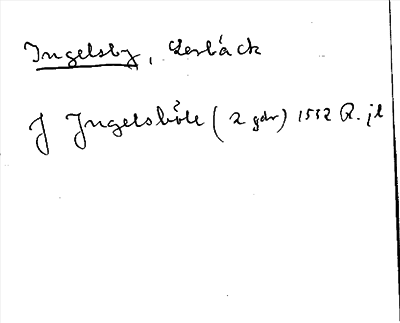 Ingelsby, Lerbäck
J Jngelsböle (2 gdr) 1552 R. jl